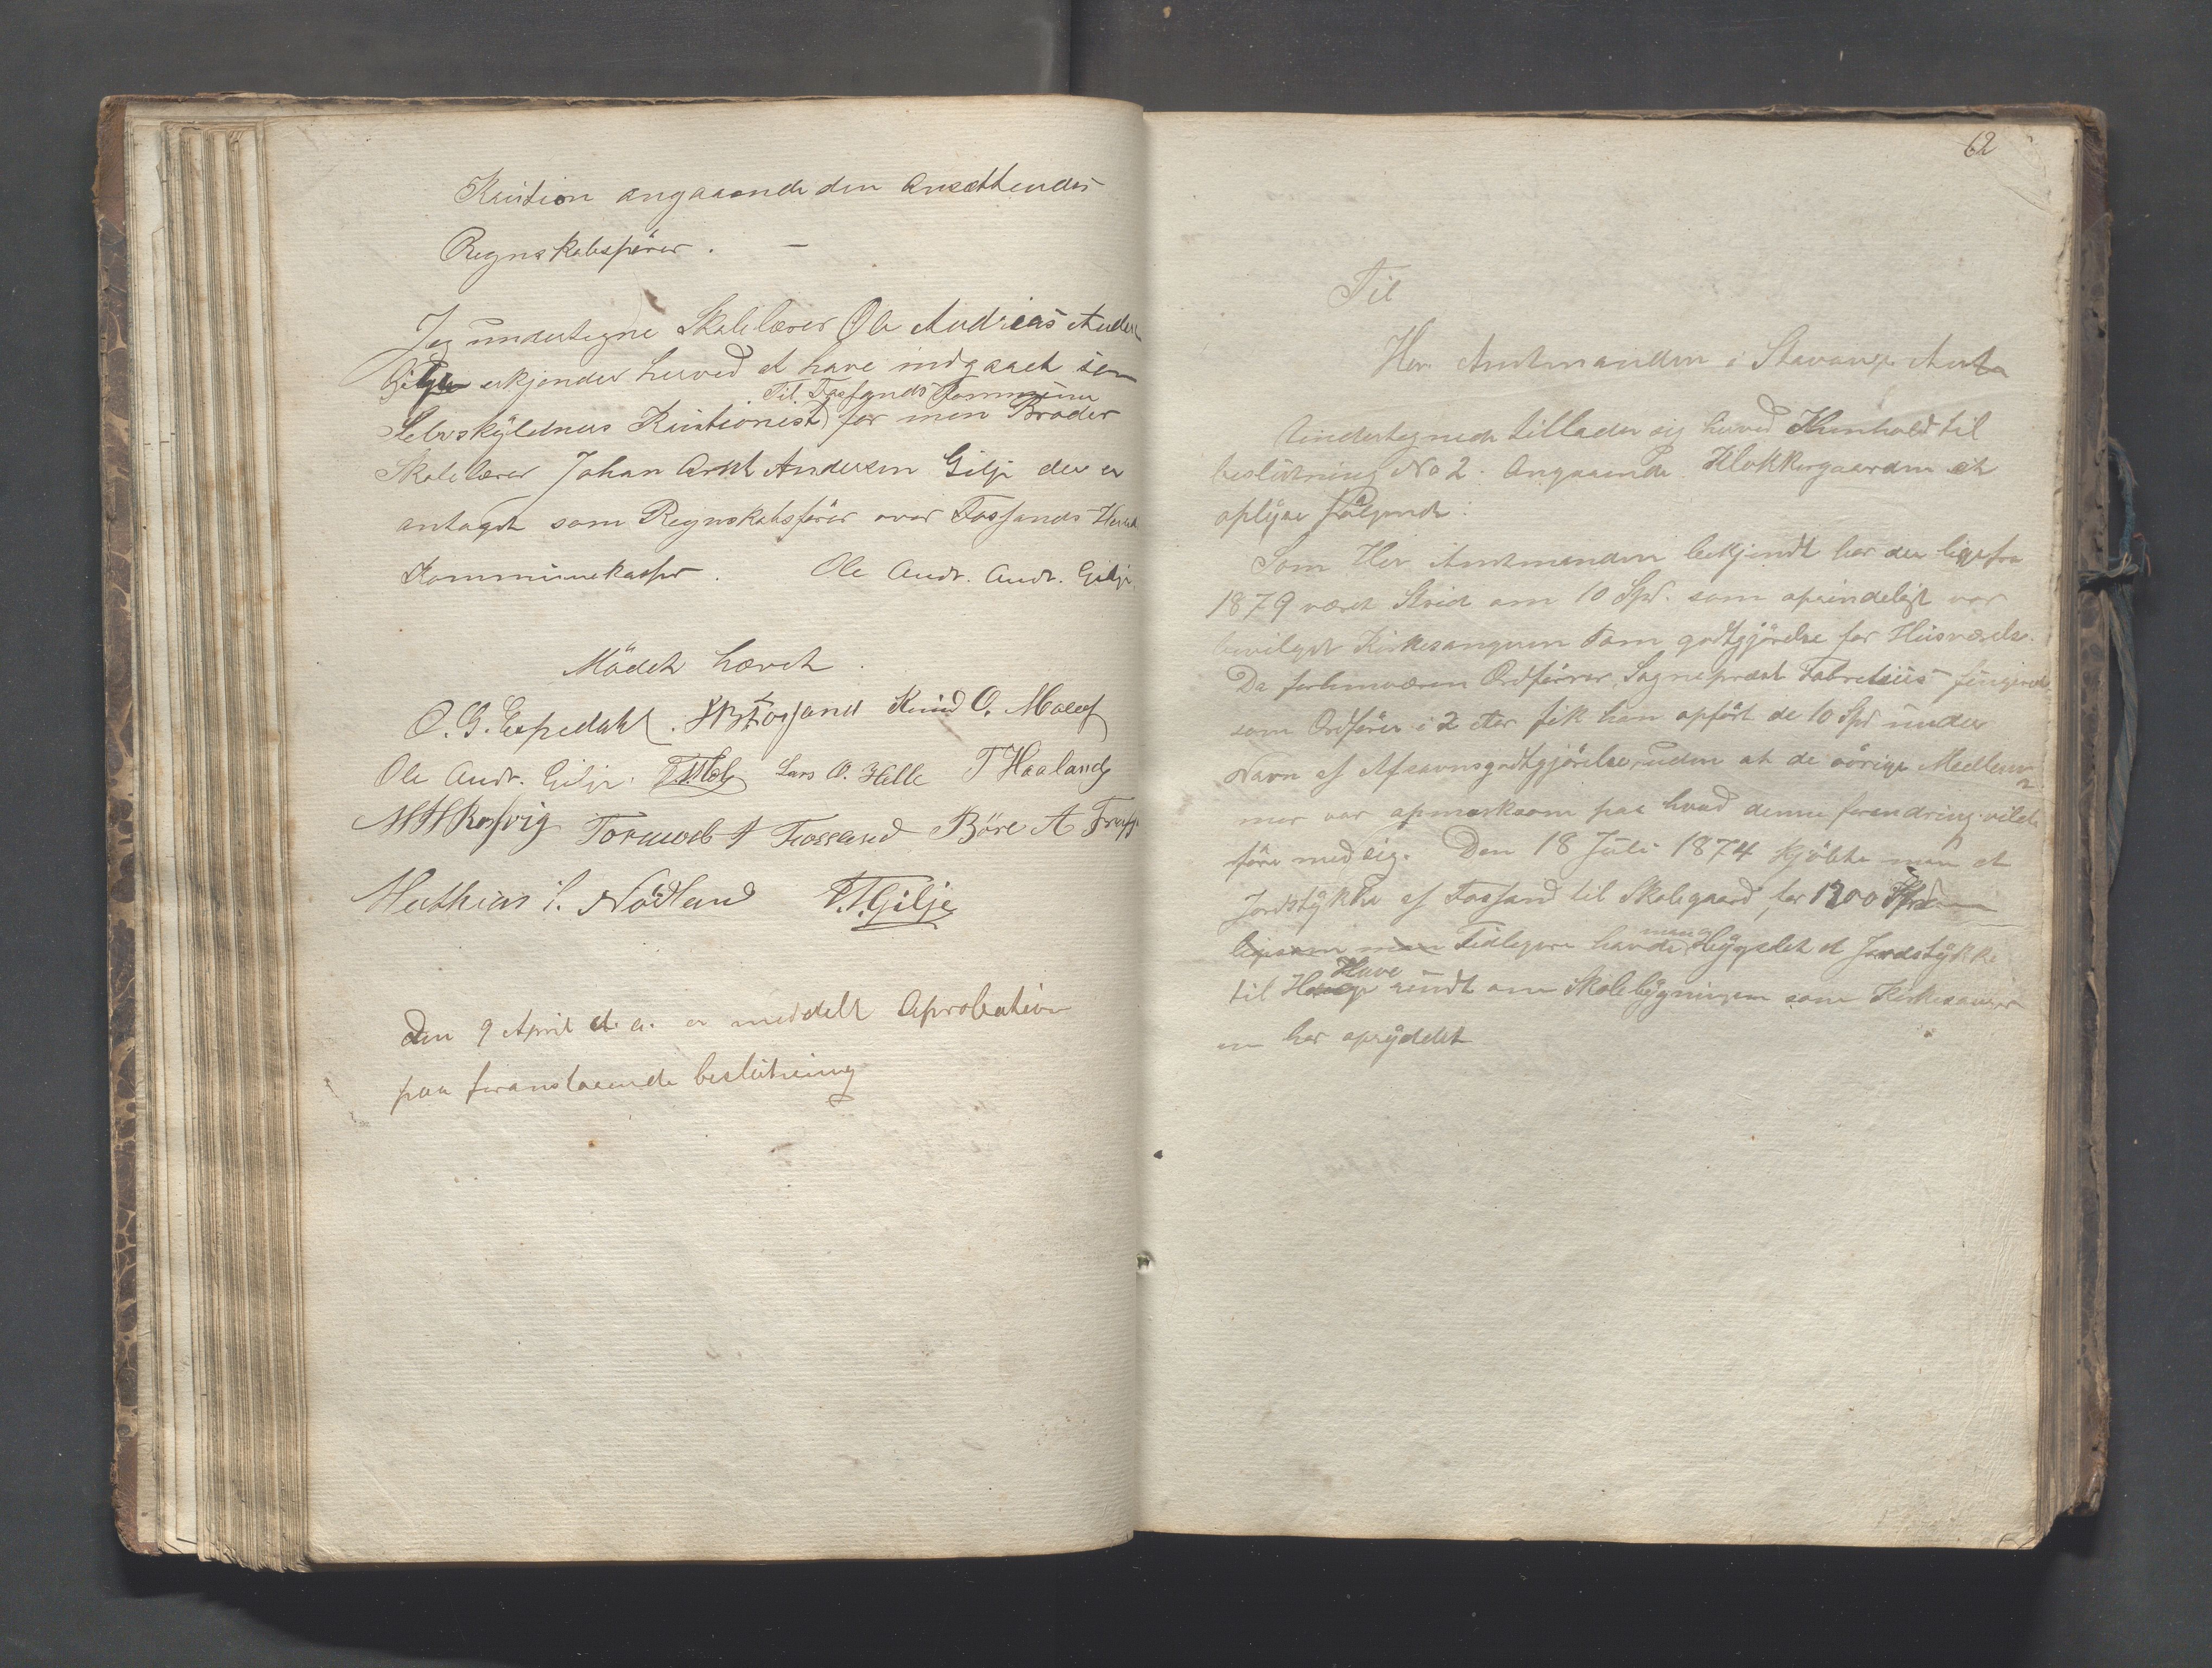 Kaution angaaende den Ansættendes
Regnskabsfører. —
Jeg undertegne Skolelærer Ole Andreas Ander
Gilje erkjender herved at have indgaaet som
Til Fosfands Kommune
Selvskyldners Kautionist for min Broder
Skolelærer Johan Arnt Andersen Gilje der er
antaget som Regnskabsfører over Fosfands Herred
Kommunekasse. Ole Andr. Andr. Gilje
Mødet hævet.
O. G. Espedahl. Fosfand Knud O. Maele
Ole Andr. Gilje. Lars O. Helle T Haaland
Rosvig Tormod T Fossand Børe A
Mathias I. Nödland T. T. Gilje
Den 9 April d. a. er meddelt Aprobation
paa foranstaaende beslutning
62
Til
Her. Amtmanden i Stavanger Amt
Undertegnede tillader sig herved Henhold til
beslutning No 2. Angaaende Klokkergaarden at
oplyse følgende:
Som Her Amtmanden bekjendt har der lige fra
1879 været Strid om 10 Spd. som oprindeligt var
bevilget Kirkesangeren som godtgjørelse for Husværelse.
Da forhenværen Ordfører, Sogneprest Fabretsius fungerede
som Ordfører i 2 Aar fik han opført de 10 Spd under
Navn af Afsavnsgodtgjørelse uden at de øvrige Medlem
mer var opmerksom paa hvad denne forandring vilde
føre med sig. Den 18 Juli 1874 kjøbte man et
Jordstykke af Fosfand til Skolegaard for 1200 Spd
man
ligesom man Tidligere havde bygslet et Jordstykke
Have
til Hauge rundt om Skolebygningen som Kirkesanger
en har opryddet